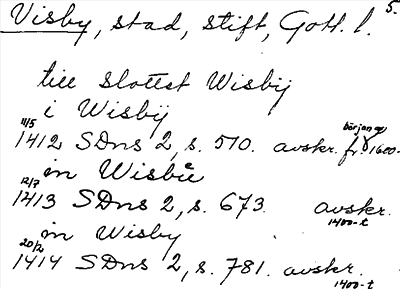 Visby, stad, stift, Gotl. l. 5.
till slottet Wisbÿ
i Wisbÿ
11/5 1412 SDns 2, s. 510. avskr. fr. början av 1600-t
in Wisbue
12/7 1413 SDns 2, s. 673. avskr. 1400-t
in Wisby
20/2 1414 SDns 2, s. 781. avskr. 1400-t